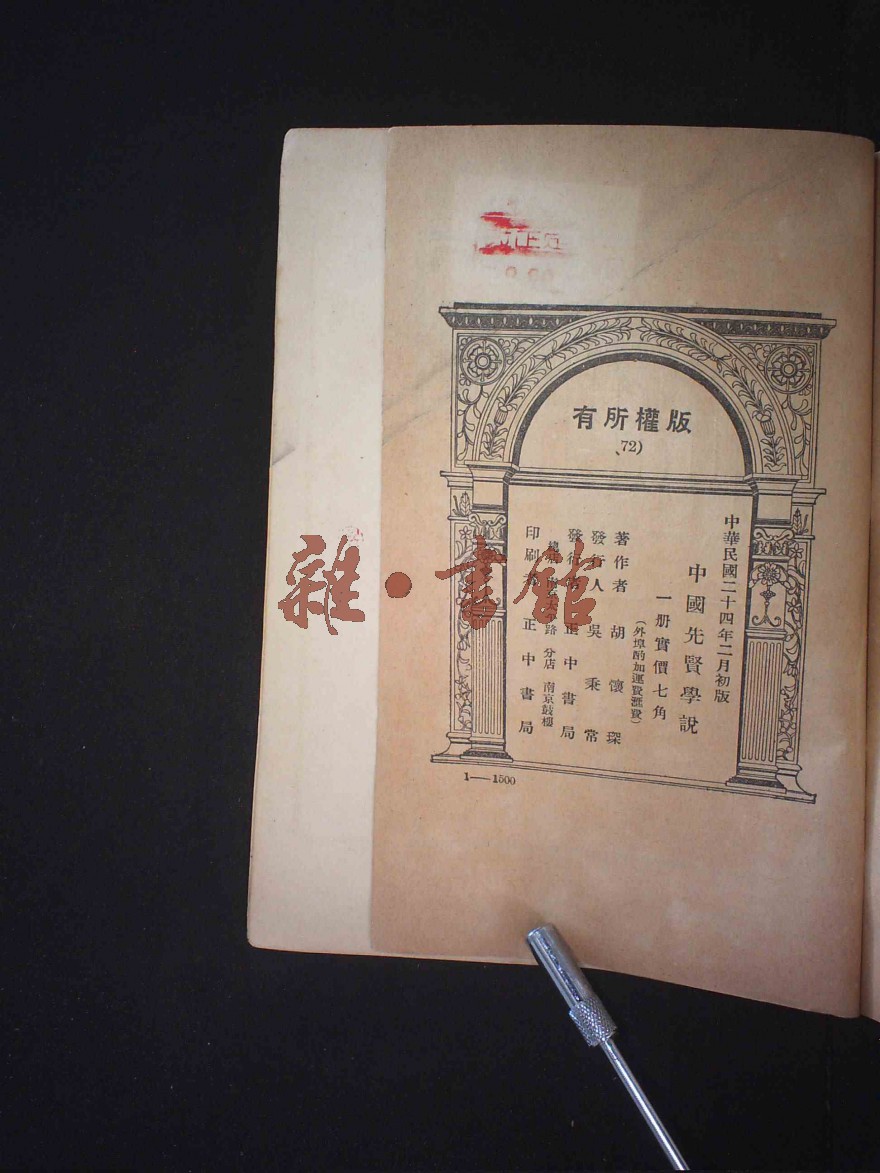 版權所有
72)
中華民國二十四年二月初版
中國先賢學說
一册實價七角
(外埠酌加運費滙費)
著作者 胡懷琛
發行人 吳秉常
發行 正中書局
路 分店 南京鼓樓
印刷 正中書局
1—1500
雜·書館